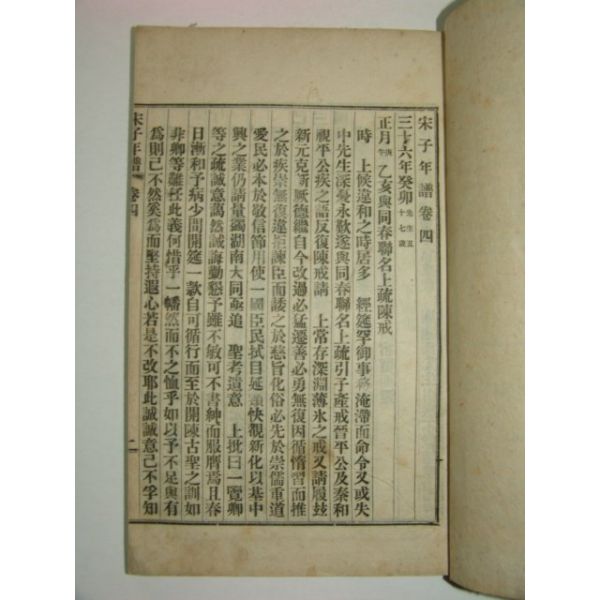 宋子年譜卷四
三十六年癸卯先生五十七歲
正月丙午乙亥與同春聯名上疏陳戒
時 上候違和之時居多 經筵罕御事務淹滯而命令又或失
中先生深憂永歎遂與同春聯名上疏引子產戒晉平公及秦和
視平公疾之語反復陳戒請 上常存深淵薄氷之戒又請履玆
新元克新厥德繼自今改過必猛遷善必勇無復因循惰習而推
之於疾祟無復違拒諫臣而諉之於慈旨化俗必先於崇儒重道
愛民必本於敬信節用使一國臣民拭目延頸快覩新化以基中
興之業仍請量蠲湖南大同亟追 聖考遺意 上批曰一覽卿
等之疏誠意藹然誠誨勤懇予雖不敏可不書紳而服膺焉且春
日漸和予病少間開筵一款自可循行而至於開陳古聖之訓如
非卿等難任此義何惜乎一幡然而不之恤乎如以予不足與有
爲則已不然奚爲而堅持遐心若是不改耶此誠誠意已不孚知
宋子年譜 卷四 一